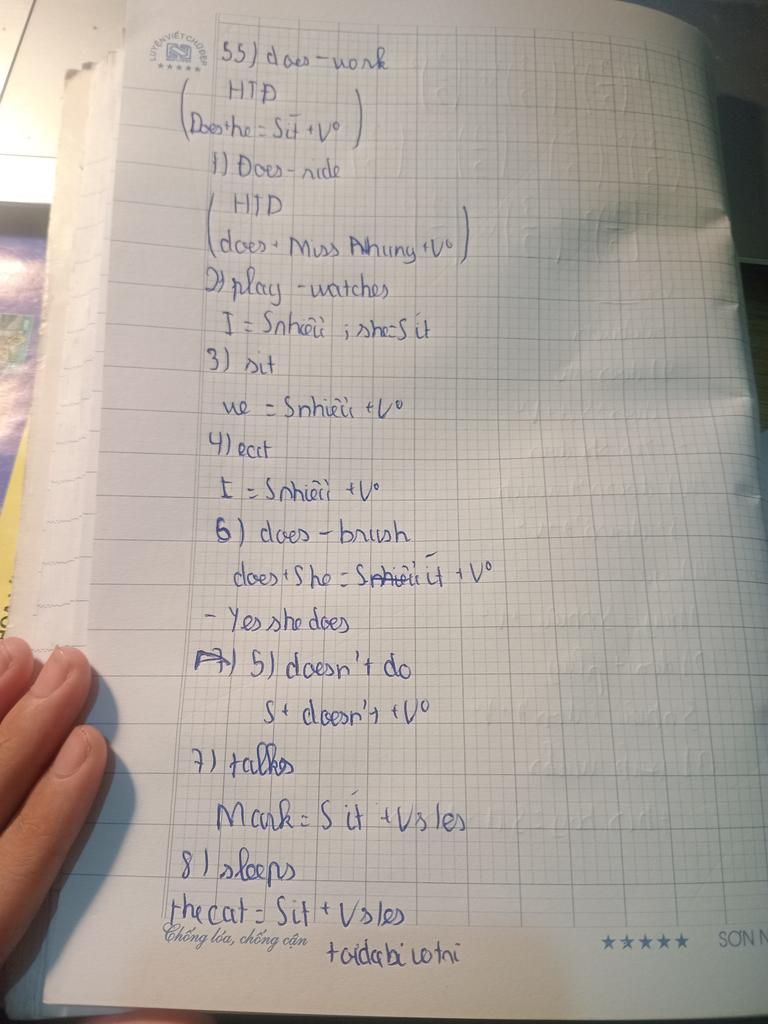 LUYỆN VIẾT CHỮ ĐẸP
55) does - work
HTĐ
(Does + he = S ít + V⁰)
1) Does - ride
HTĐ
(does + Miss Nhung + V⁰)
2) play - watches
I = S nhiều ; she = S ít
3) sit
we = S nhiều + V⁰
4) eat
I = S nhiều + V⁰
6) does - brush
does + She = S nhiều ít + V⁰
- Yes she does
7) 5) doesn't do
S + doesn't + V⁰
7) talks
Mark = S ít + Vs/es
8) sleeps
the cat = S ít + Vs/es
Chống lóa, chống cận
SƠN